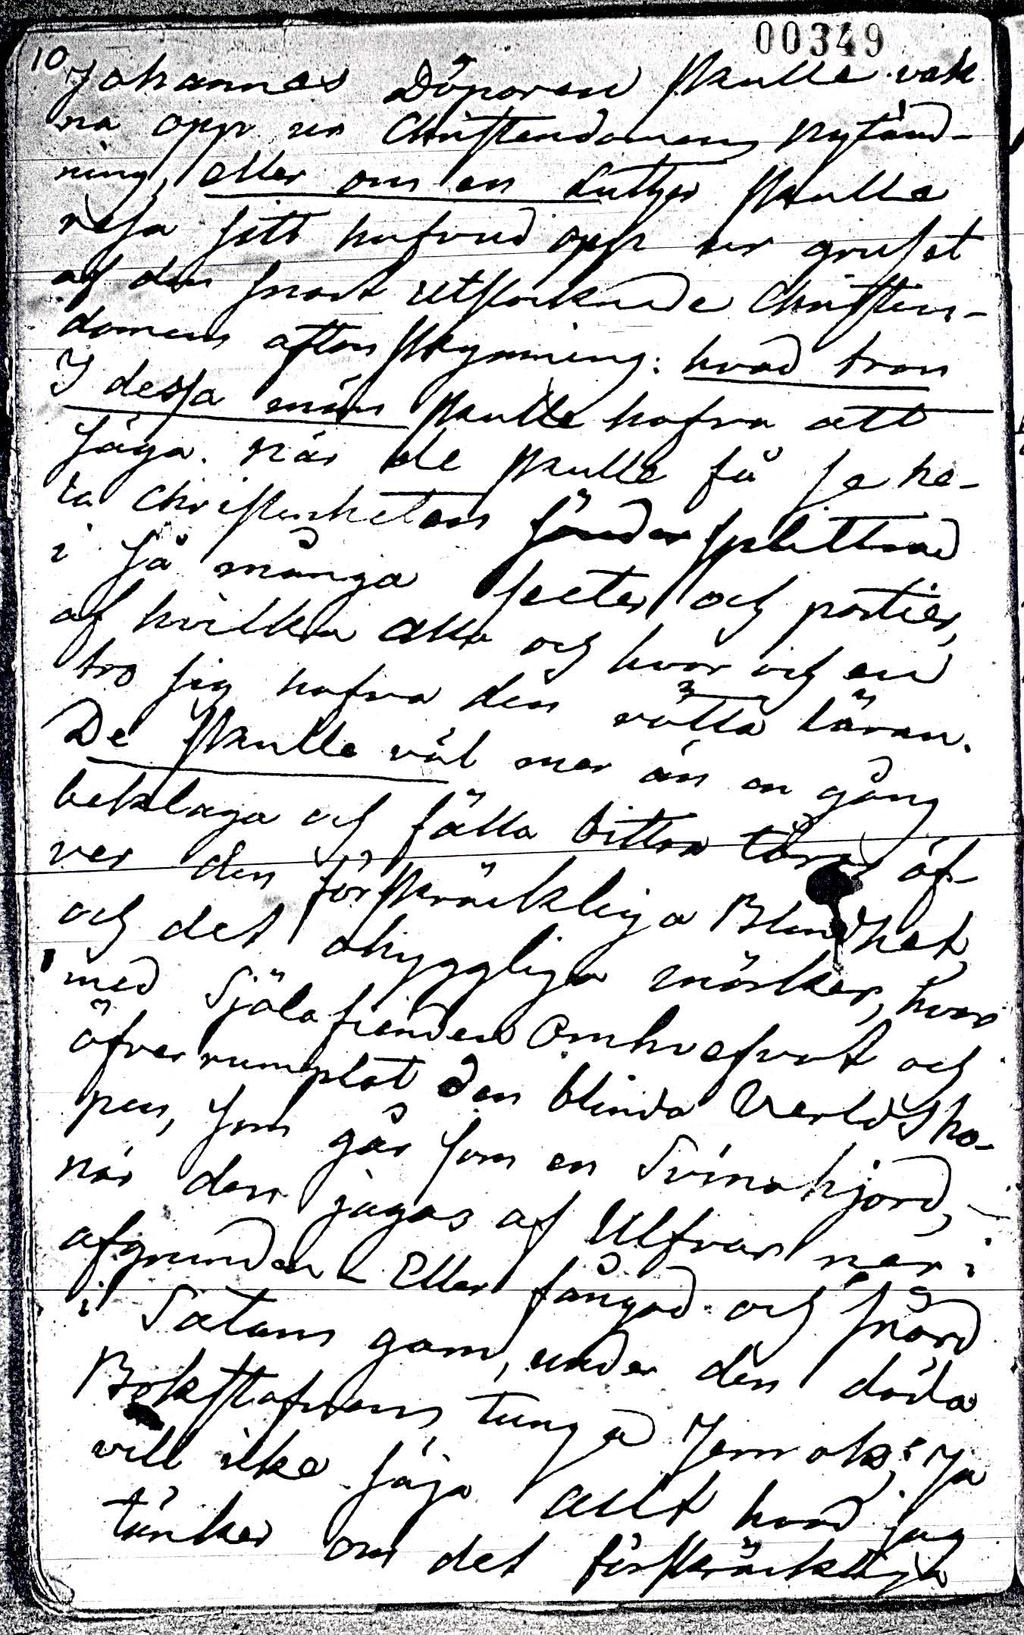 00349
10
Johannes Döparen skulle vak
na opp ur Christendomens nytänd-
ning, eller om en Luther skulle
resa sitt hufvud opp ur gruset
af den snart utslocknade Christen-
domens aftonskymning: hvad tron
I dessa män skulle hafva att
säga. när de skulle få se he-
la Christenheten sönder splittrad
i så många secter och partier,
af hvilka alla och hvar och en
tro sig hafva den rätta läran.
De skulle väl mer än en gång
beklaga och fälla bittra tårar öf-
ver den förskräckliga Blindhet,
och det ohyggliga mörker, hvar
med Själafienden Omhvefvat och
öfverrumplat den blinda Verldsho-
pen, som går som en Svinahjord,
när den jagas af Ulfvar ner i
afgrunden - Eller fångad och snärd
i Satans garn, under den döda
Bokstafvens tunga Jernok; Ja
vill icke säja allt hvad jag
tänker om det förskräckliga